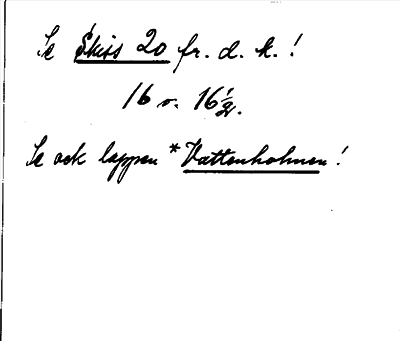 Se Skiss 20 fr. d. k.!
16 o. 16 1/2.
Se ock lappen *Vattenholmen!